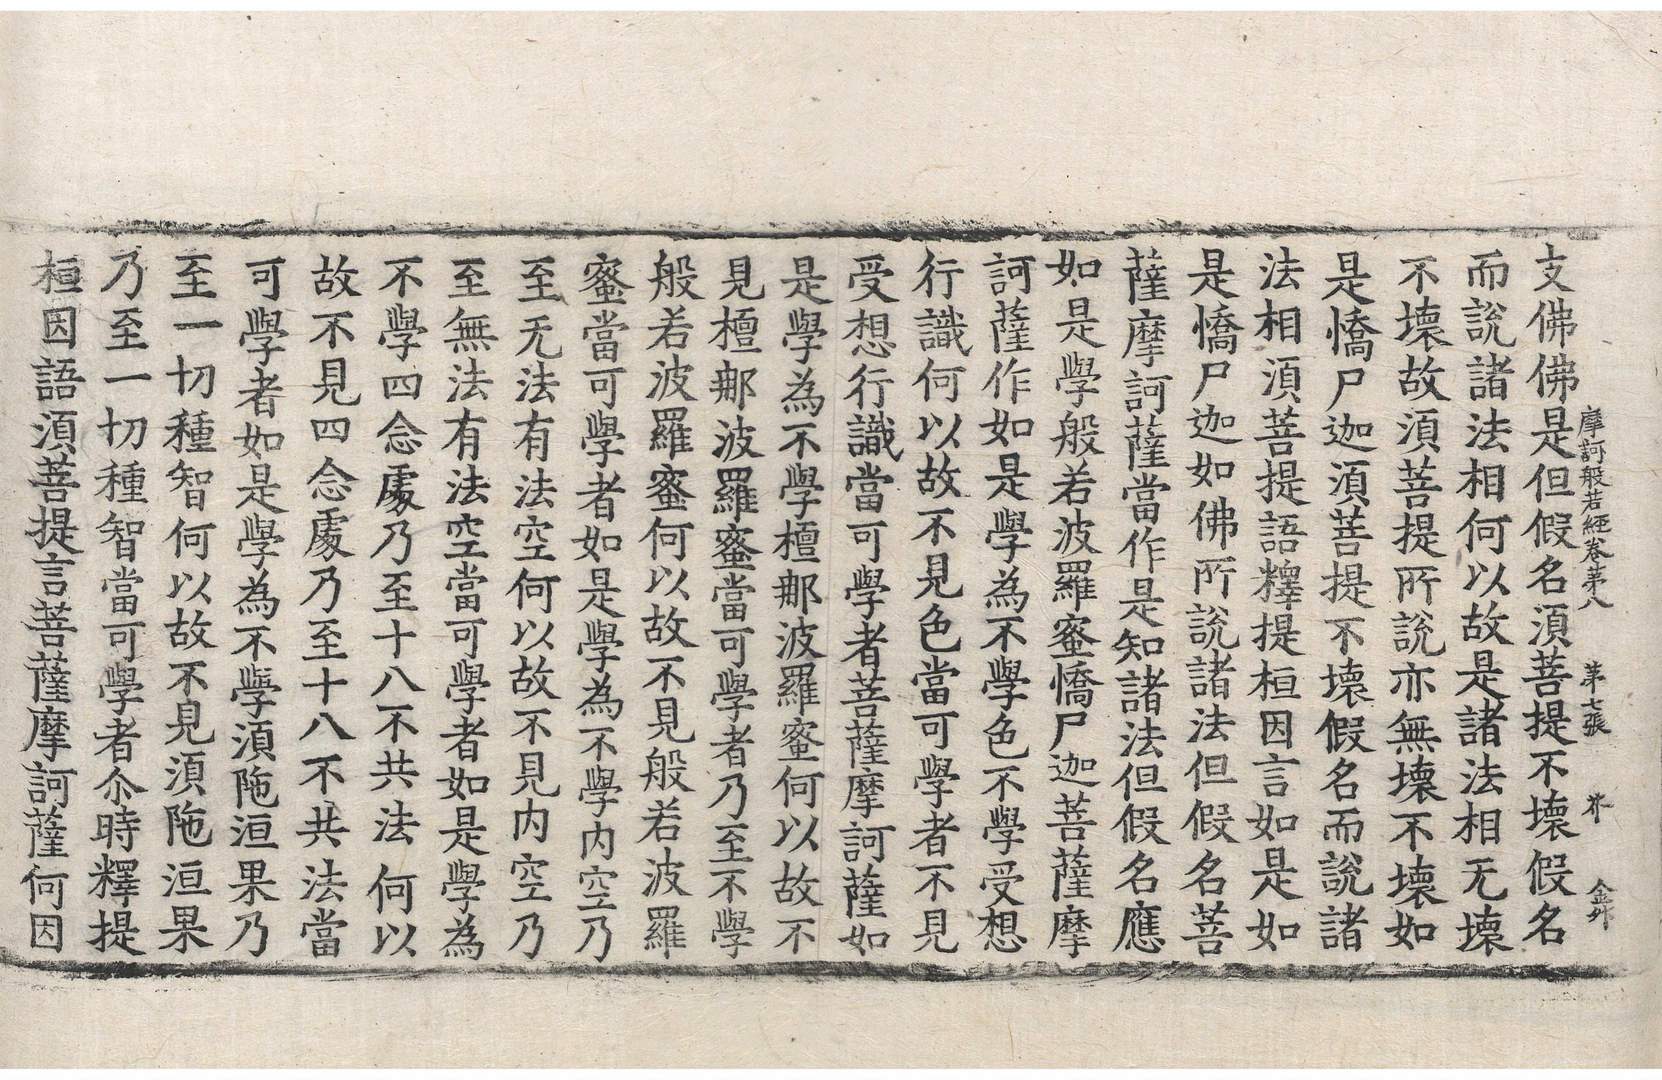 摩訶般若經卷第八　第七張　芥　金升
支佛佛是但假名須菩提不壞假名
而說諸法相何以故是諸法相无壞
不壞故須菩提所說亦無壞不壞如
是憍尸迦須菩提不壞假名而說諸
法相須菩提語釋提桓因言如是如
是憍尸迦如佛所說諸法但假名菩
薩摩訶薩當作是知諸法但假名應
如是學般若波羅蜜憍尸迦菩薩摩
訶薩作如是學為不學色不學受想
行識何以故不見色當可學者不見
受想行識當可學者菩薩摩訶薩如
是學為不學檀那波羅蜜何以故不
見檀那波羅蜜當可學者乃至不學
般若波羅蜜何以故不見般若波羅
蜜當可學者如是學為不學内空乃
至无法有法空何以故不見内空乃
至無法有法空當可學者如是學為
不學四念處乃至十八不共法何以
故不見四念處乃至十八不共法當
可學者如是學為不學須陁洹果乃
至一切種智何以故不見須陁洹果
乃至一切種智當可學者尒時釋提
桓因語須菩提言菩薩摩訶薩何因